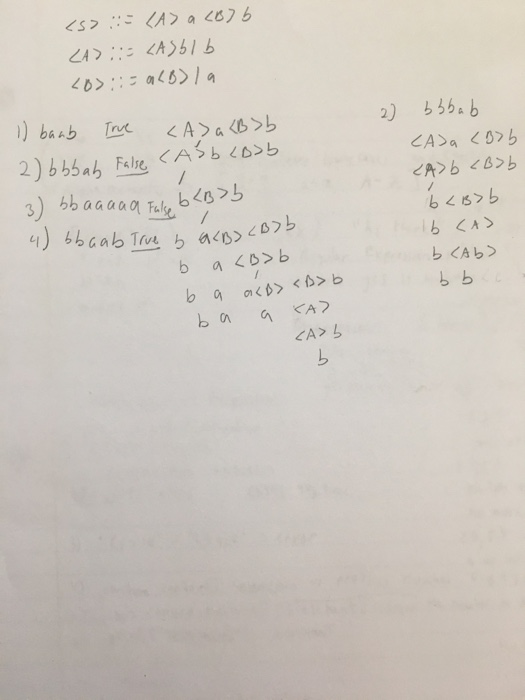 <S> ::= <A> a <B> b
<A> ::= <A>b | b
<B> ::= a<B> | a
1) baab True
2) bbbab False
3) bbaaaaa False
4) bbaab True
<A>a<B>b
<A>b <B>b
b<B>b
b a<B> <B>b
b a <B>b
b a a<B> <B>b
b a a <A>
<A>b
b
2) bbbab
<A>a <B>b
<A>b <B>b
b <B>b
b <A>
b <Ab>
b b